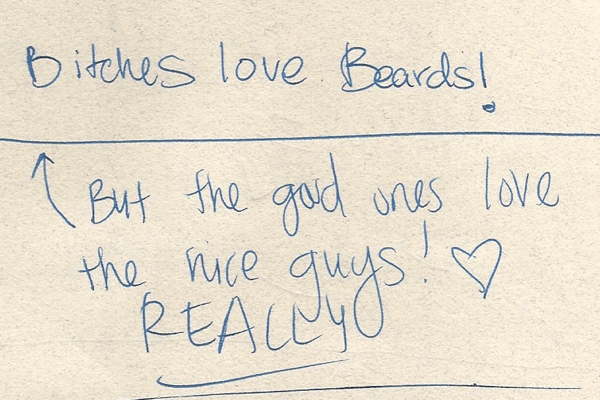 Bitches love Beards!
But the good ones love
the nice guys! ♡
REALLY